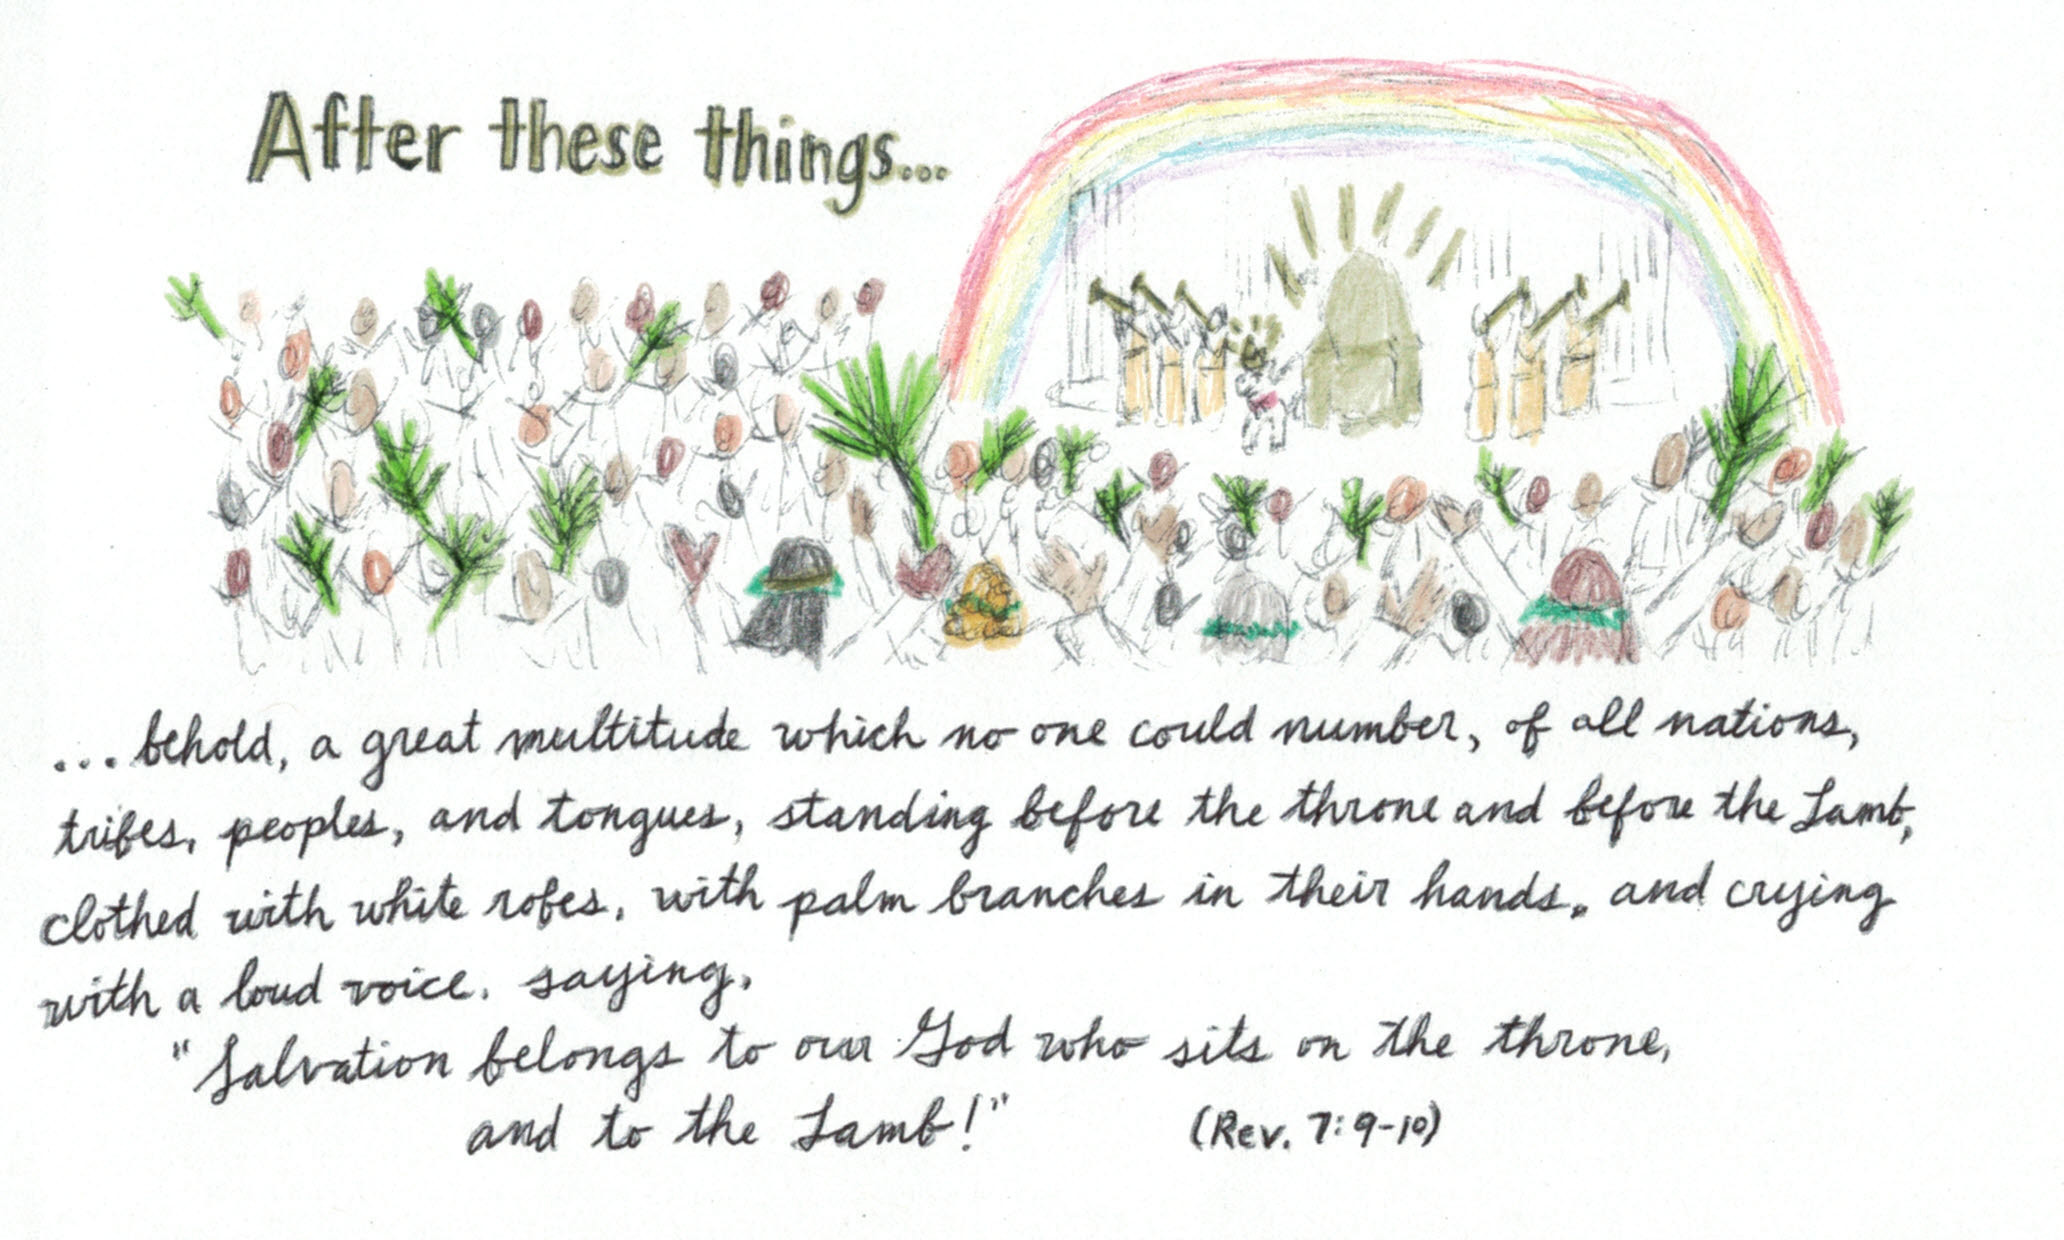 After these things...
...behold, a great multitude which no one could number, of all nations,
tribes, peoples, and tongues, standing before the throne and before the Lamb,
clothed with white robes, with palm branches in their hands, and crying
with a loud voice, saying,
"Salvation belongs to our God who sits on the throne,
and to the Lamb!" (Rev. 7:9-10)